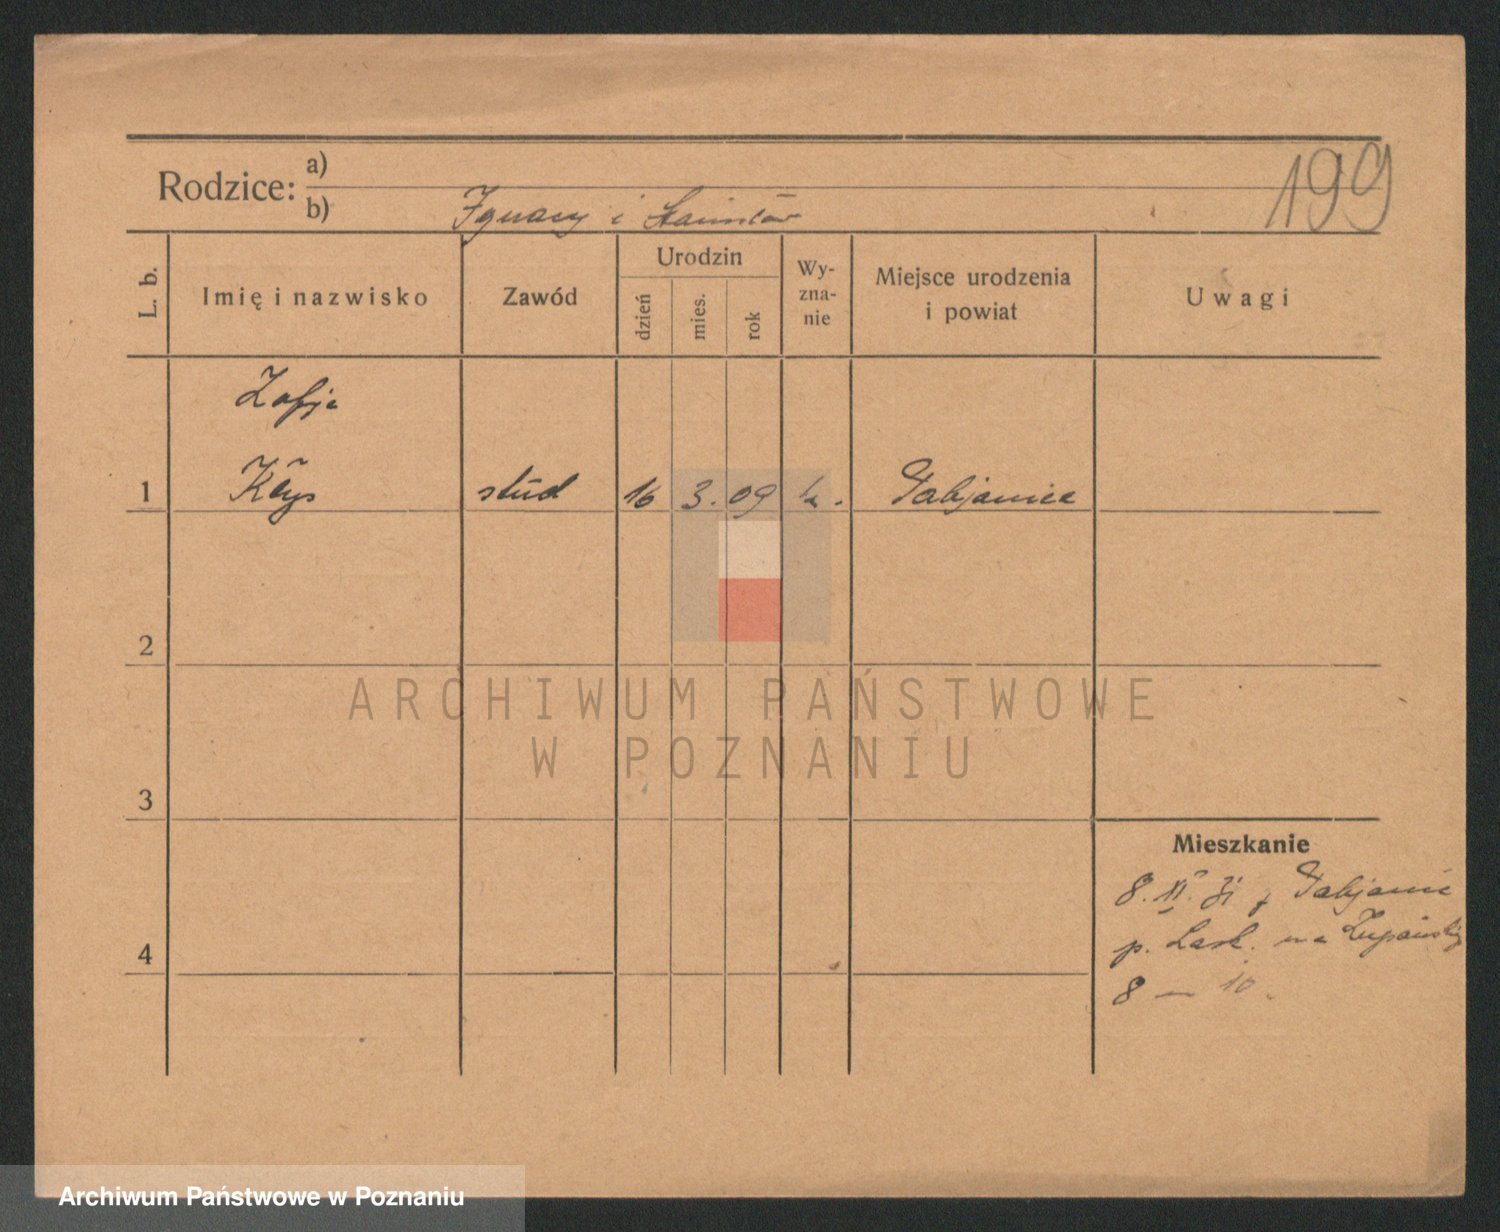 199
Rodzice: a)
b) Ignacy i
L. b.
Imię i nazwisko
Zawód
Urodzin
dzień
mies.
rok
Wy-
zna-
nie
Miejsce urodzenia
i powiat
Uwagi
Zofja
1 Kłys stud 16 3. 09 k. Pabjanice
2
3
4
Mieszkanie
8. XI. 31 z Pabjanic
p. Łask. na
8 — 10.
ARCHIWUM PAŃSTWOWE
W POZNANIU
Archiwum Państwowe w Poznaniu